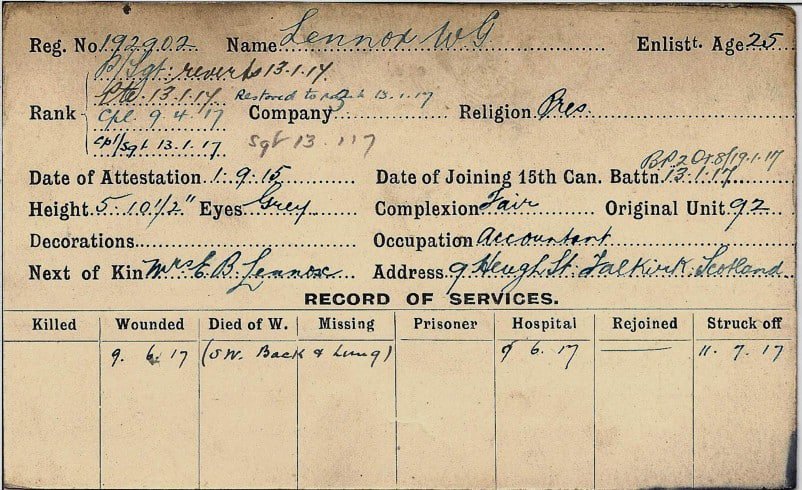 Reg. No. 192902 Name Lennox W G Enlistt. Age 25
P/Sgt reverts 13.1.17.
Pte. 13.1.17. Restored to 13.1.17
Rank Cpl 9.4.17 Company 3 Religion Pres
Cpl/Sgt 13.1.17 Sgt 13 1 17
BP2 Or 8/19.1.17
Date of Attestation 1.9.15 Date of Joining 15th Can. Battn. 13.1.17
Height 5' 10 1/2" Eyes Grey Complexion Fair Original Unit 92
Decorations Occupation Accountant
Next of Kin Mrs E. B. Lennox Address 9 Heugh St. Falkirk. Scotland
RECORD OF SERVICES.
Killed Wounded Died of W. Missing Prisoner Hospital Rejoined Struck off
9. 6. 17 (SW. Back & Lung) 9 6. 17 11. 7. 17